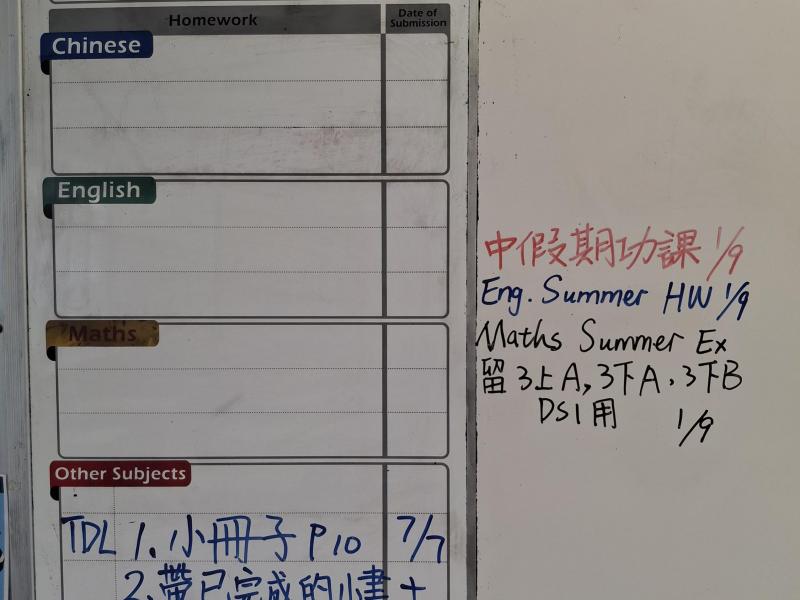 Homework
Date of
Submission
Chinese
English
Maths
Other Subjects
TDL 1. 小冊子 P10 7/7
2. 帶已完成的小書 +
中假期功課 1/9
Eng. Summer HW 1/9
Maths Summer Ex
留3上A, 3下A, 3下B
DS1用 1/9